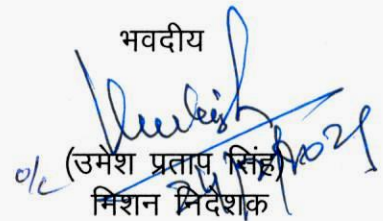 भवदीय
o/c (उमेश प्रताप सिंह)
मिशन निदेशक